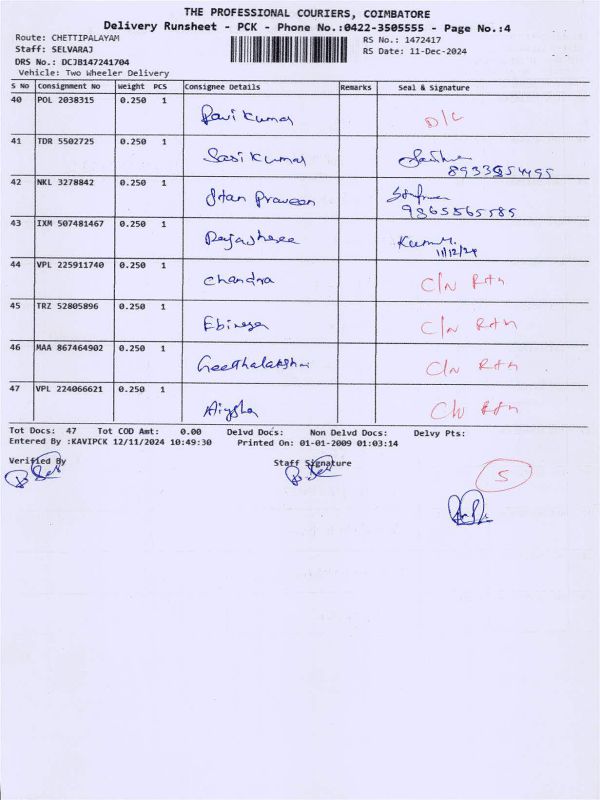 THE PROFESSIONAL COURIERS, COIMBATORE
Delivery Runsheet - PCK - Phone No.:0422-3505555 - Page No.:4
Route: CHETTIPALAYAM RS No.: 1472417
Staff: SELVARAJ RS Date: 11-Dec-2024
DRS No.: DCJB147241704
Vehicle: Two Wheeler Delivery
S No Consignment No Weight PCS Consignee Details Remarks Seal & Signature
40 POL 2038315 0.250 1 Ravi Kumar D/L
41 TDR 5502725 0.250 1 Sasi Kumar
42 NKL 3278842 0.250 1 Praveen
9865565585
43 IXM 507481467 0.250 1 Rajashree
11/12/24
44 VPL 225911740 0.250 1 Chandra C/N Rtn
45 TRZ 52805896 0.250 1 C/N Rtn
46 MAA 867464902 0.250 1 Geethalakshmi C/N Rtn
47 VPL 224066621 0.250 1 Aiysha C/N Rtn
Tot Docs: 47 Tot COD Amt: 0.00 Delvd Docs: Non Delvd Docs: Delvy Pts:
Entered By :KAVIPCK 12/11/2024 10:49:30 Printed On: 01-01-2009 01:03:14
Verified By Staff Signature
5